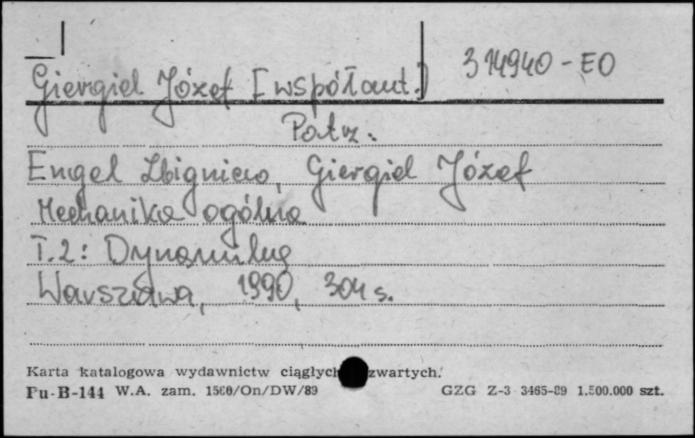 314940-EO
Giergiel Józef [współaut.]
Patrz.
Engel Zbigniew, Giergiel Józef
Mechanika ogólna
T.2: Dynamika
Warszawa, 1990, 304 s.
Karta katalogowa wydawnictw ciągłych zwartych.
Pu-B-144 W.A. zam. 1560/On/DW/89 GZG Z-3 3465-89 1.500.000 szt.